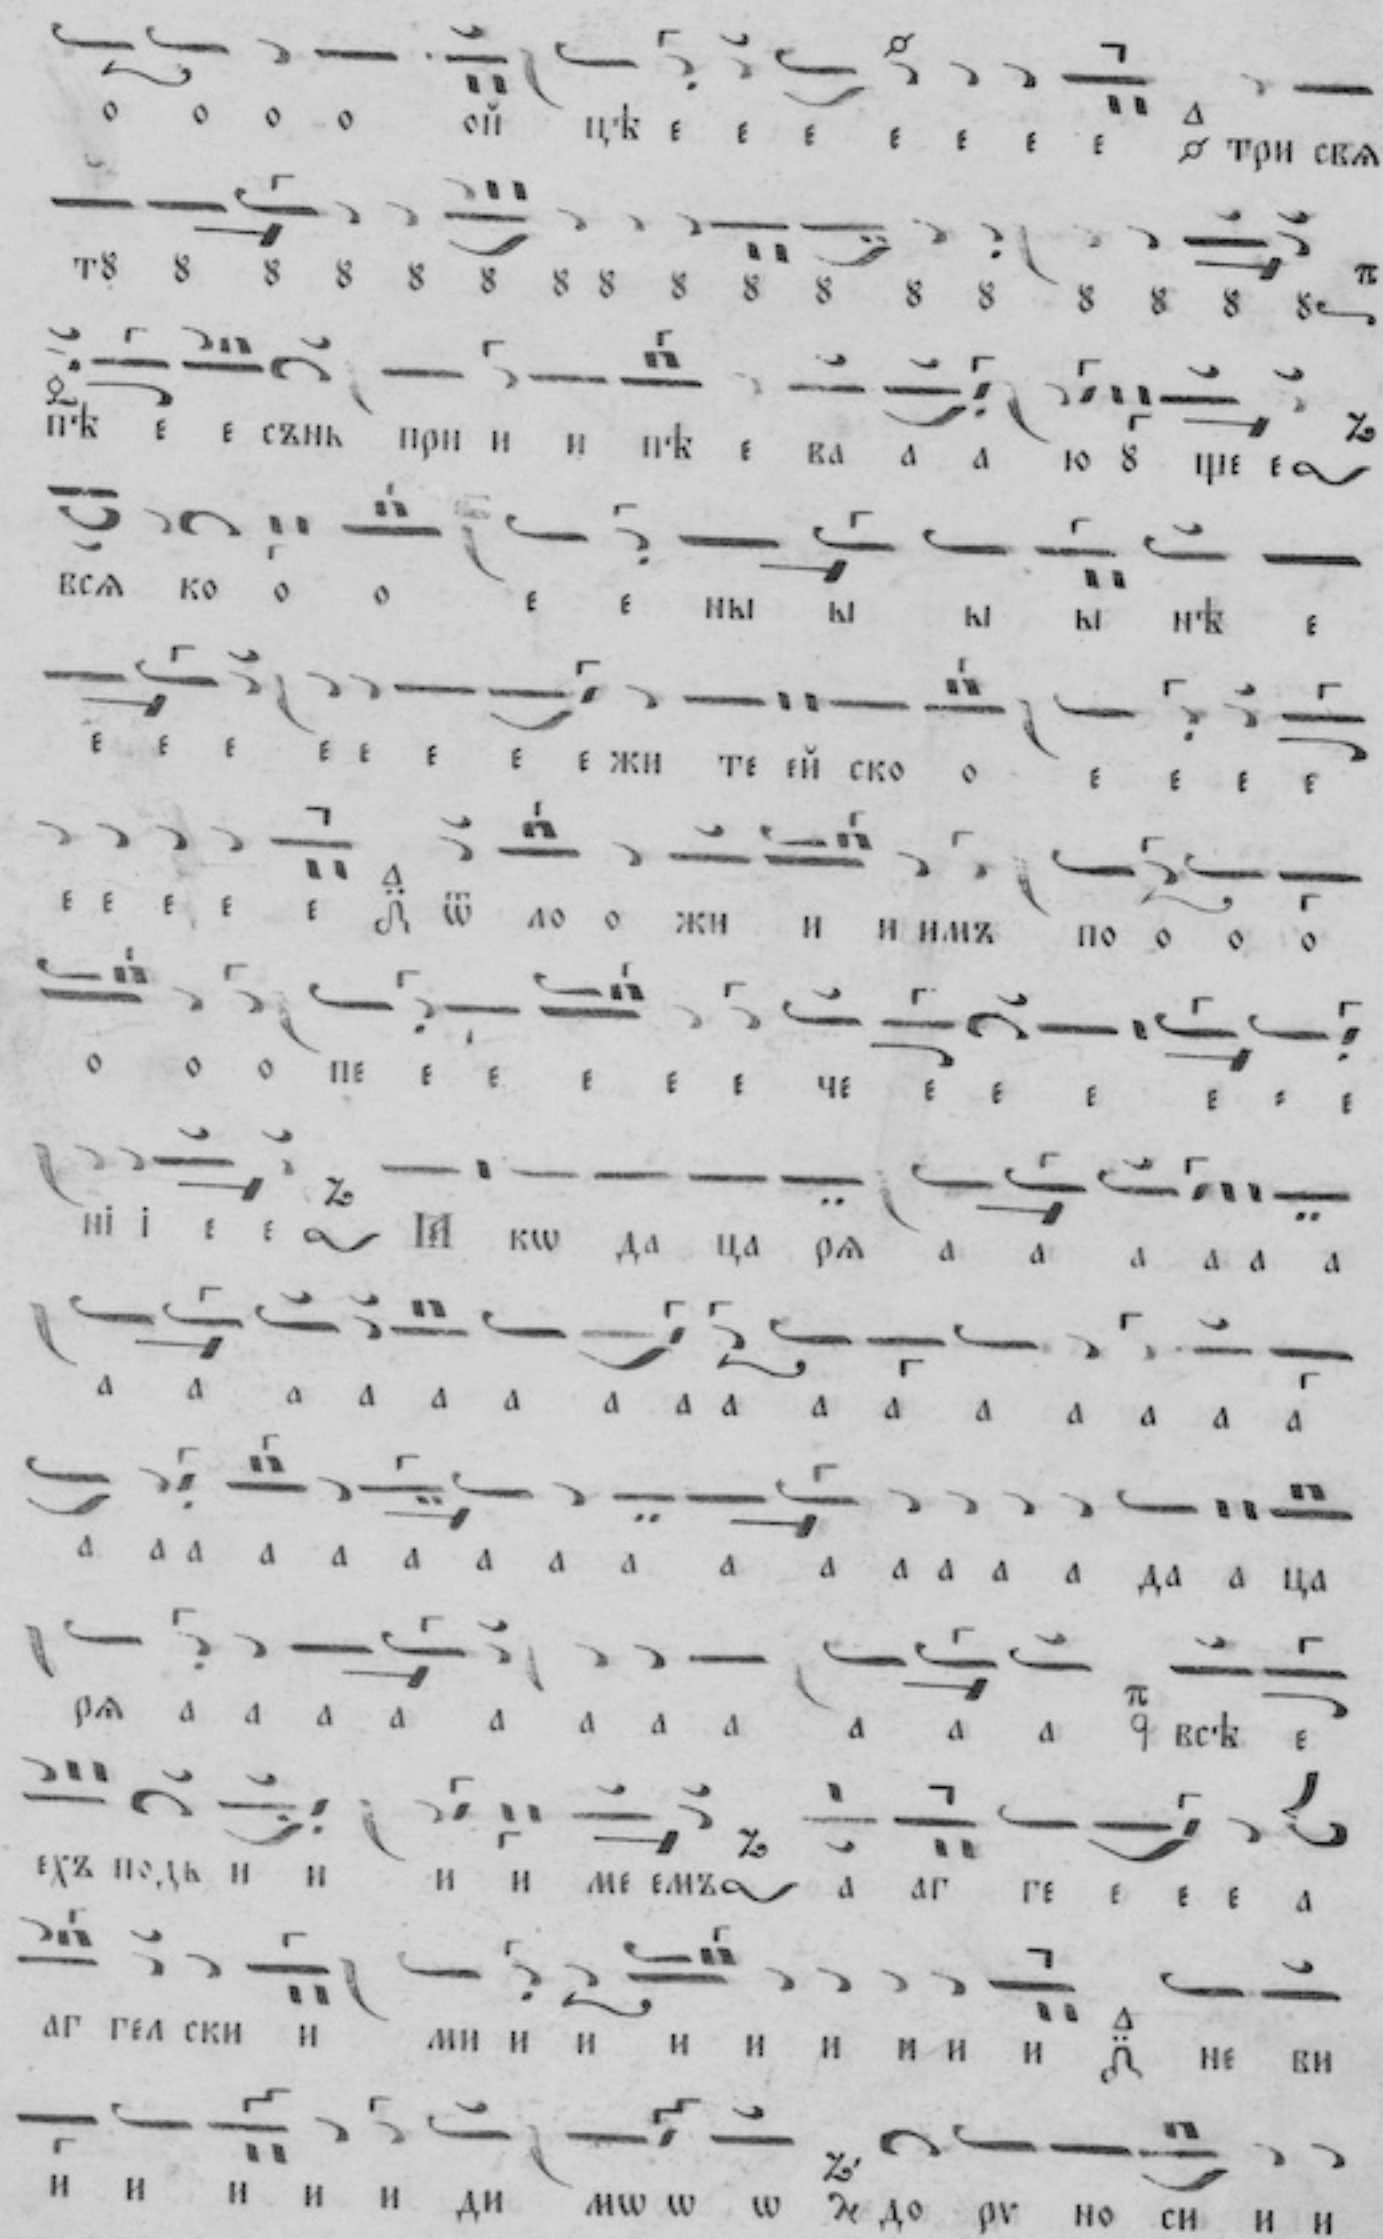 о о о о ой цѣ е е е е е е е Δ три свѧ
тꙋ ꙋ ꙋ ꙋ ꙋ ꙋ ꙋ ꙋ ꙋ ꙋ ꙋ ꙋ ꙋ ꙋ ꙋ ꙋ ꙋ π
пѣ е е сънь при и и пѣ е ва а а ю ꙋ ще е
всѧ ко о о е е ны ы ы ы нѣ е
е е е е е е е е жи те ей ско о е е е е
е е е е е Δ ѿ ло о жи и и имъ по о о о
о о о пе е е е е е че е е е е е е
ні і е е ІА кѡ да ца рѧ а а а а а а
а а а а а а а а а а а а а а а а
а а а а а а а а а а а а а а а да а ца
рѧ а а а а а а а а а а а π всѣ е
ехъ подь и и и и ме емъ а аг ге е е е а
аг гел ски и ми и и и и и и и и Δ не ви
и и и и и ди мѡ ѡ ѡ до рѵ но си и и